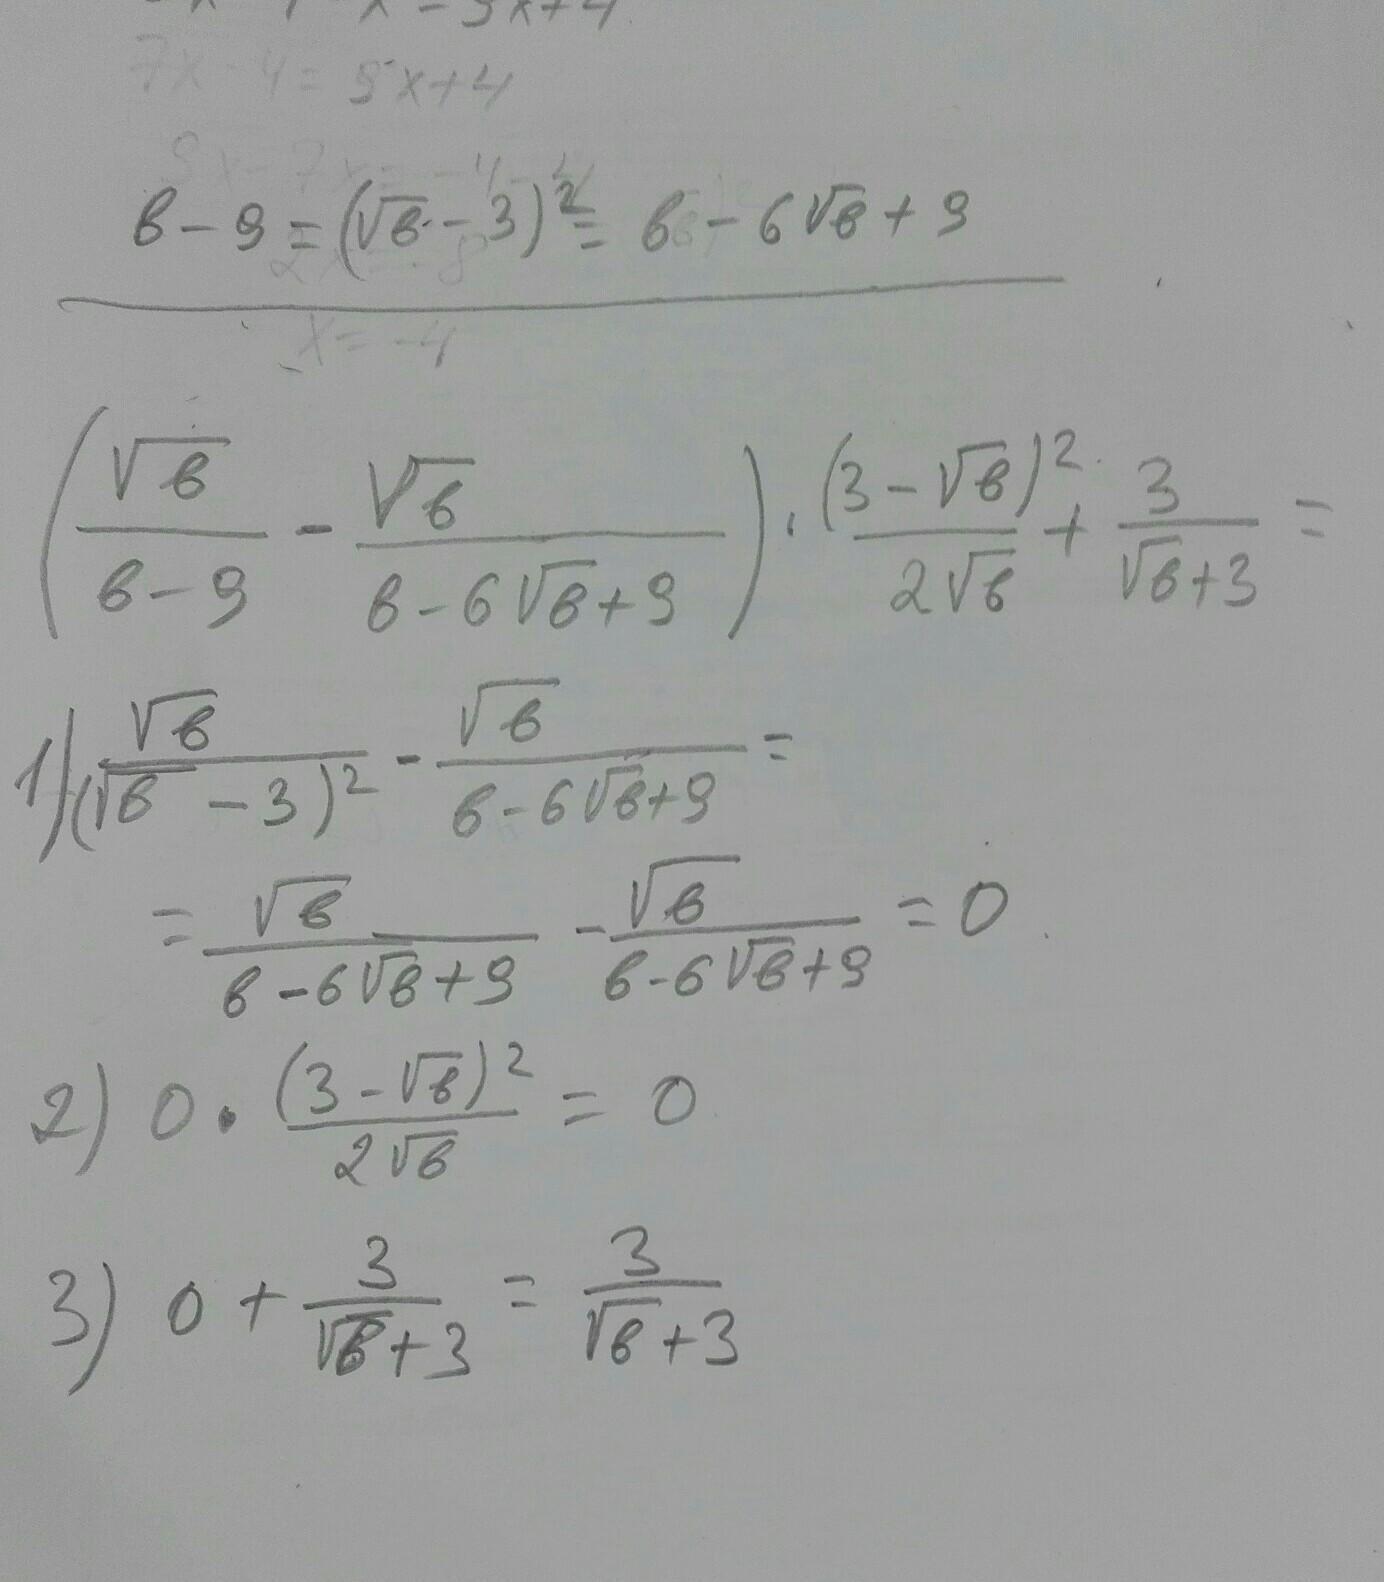 7x - 4 = 9x + 4
x = -4
в - 9 = (√в - 3)² = в - 6√в + 9
(√в/(в - 9) - √в/(в - 6√в + 9)) · (3 - √в)²/(2√в) + 3/(√в + 3) =
1) √в/(√в - 3)² - √в/(в - 6√в + 9) =
= √в/(в - 6√в + 9) - √в/(в - 6√в + 9) = 0
2) 0 · (3 - √в)²/(2√в) = 0
3) 0 + 3/(√в + 3) = 3/(√в + 3)